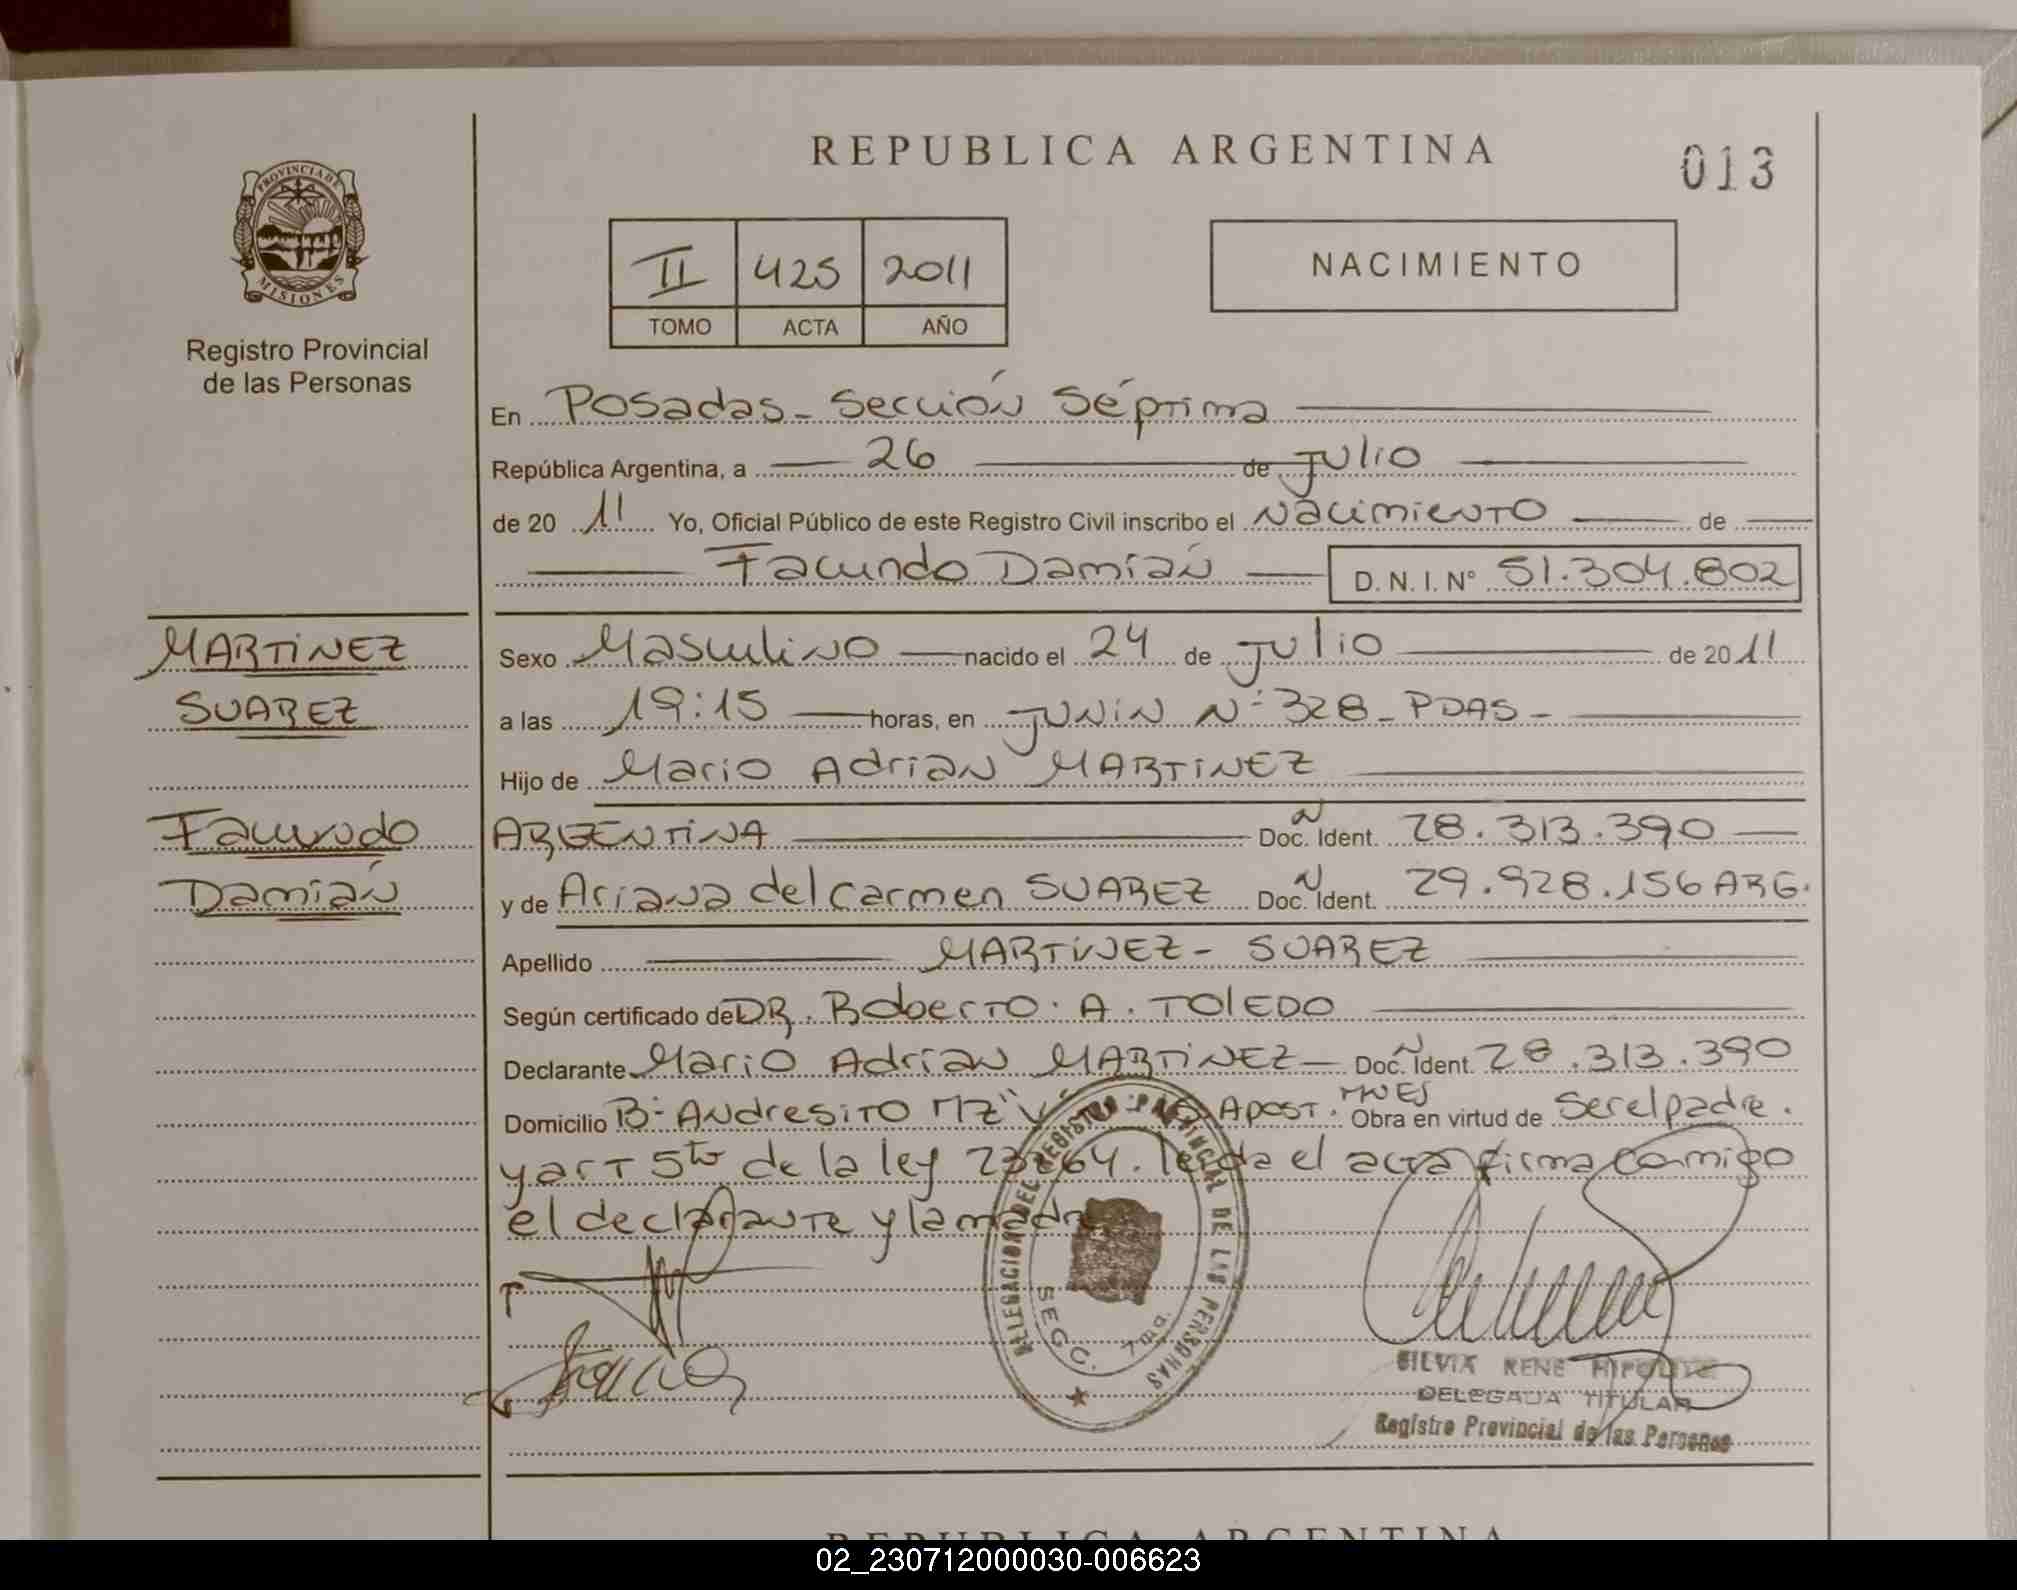 REPUBLICA ARGENTINA
013
PROVINCIA DE MISIONES
Registro Provincial
de las Personas
II 425 2011
TOMO ACTA AÑO
NACIMIENTO
En Posadas - Sección Séptima
República Argentina, a 26 de Julio
de 20 11 Yo, Oficial Público de este Registro Civil inscribo el Nacimiento de
Facundo Damián D.N.I. Nº 51.304.802
MARTINEZ
SUAREZ
Facundo
Damián
Sexo Masculino nacido el 24 de Julio de 20 11
a las 19:15 horas, en JUNIN Nº 328 - PDAS -
Hijo de Mario Adrian MARTINEZ
ARGENTINA Doc. Ident. 28.313.390
y de Ariana del Carmen SUAREZ Doc. Ident. 29.928.156 ARG.
Apellido MARTINEZ - SUAREZ
Según certificado de DR. Roberto A. TOLEDO
Declarante Mario Adrian MARTINEZ Doc. Ident. 28.313.390
Domicilio Bº Andresito MZ Apost. MNES Obra en virtud de Ser el padre.
y art 5to de la ley 23264. leida el acta firma conmigo
el declarante y la madre
DELEGACION DEL REGISTRO PROVINCIAL DE LAS PERSONAS
SECC.
SILVIA RENE HIPOLITO
DELEGADA TITULAR
Registro Provincial de las Personas
REPUBLICA ARGENTINA
02_230712000030-006623